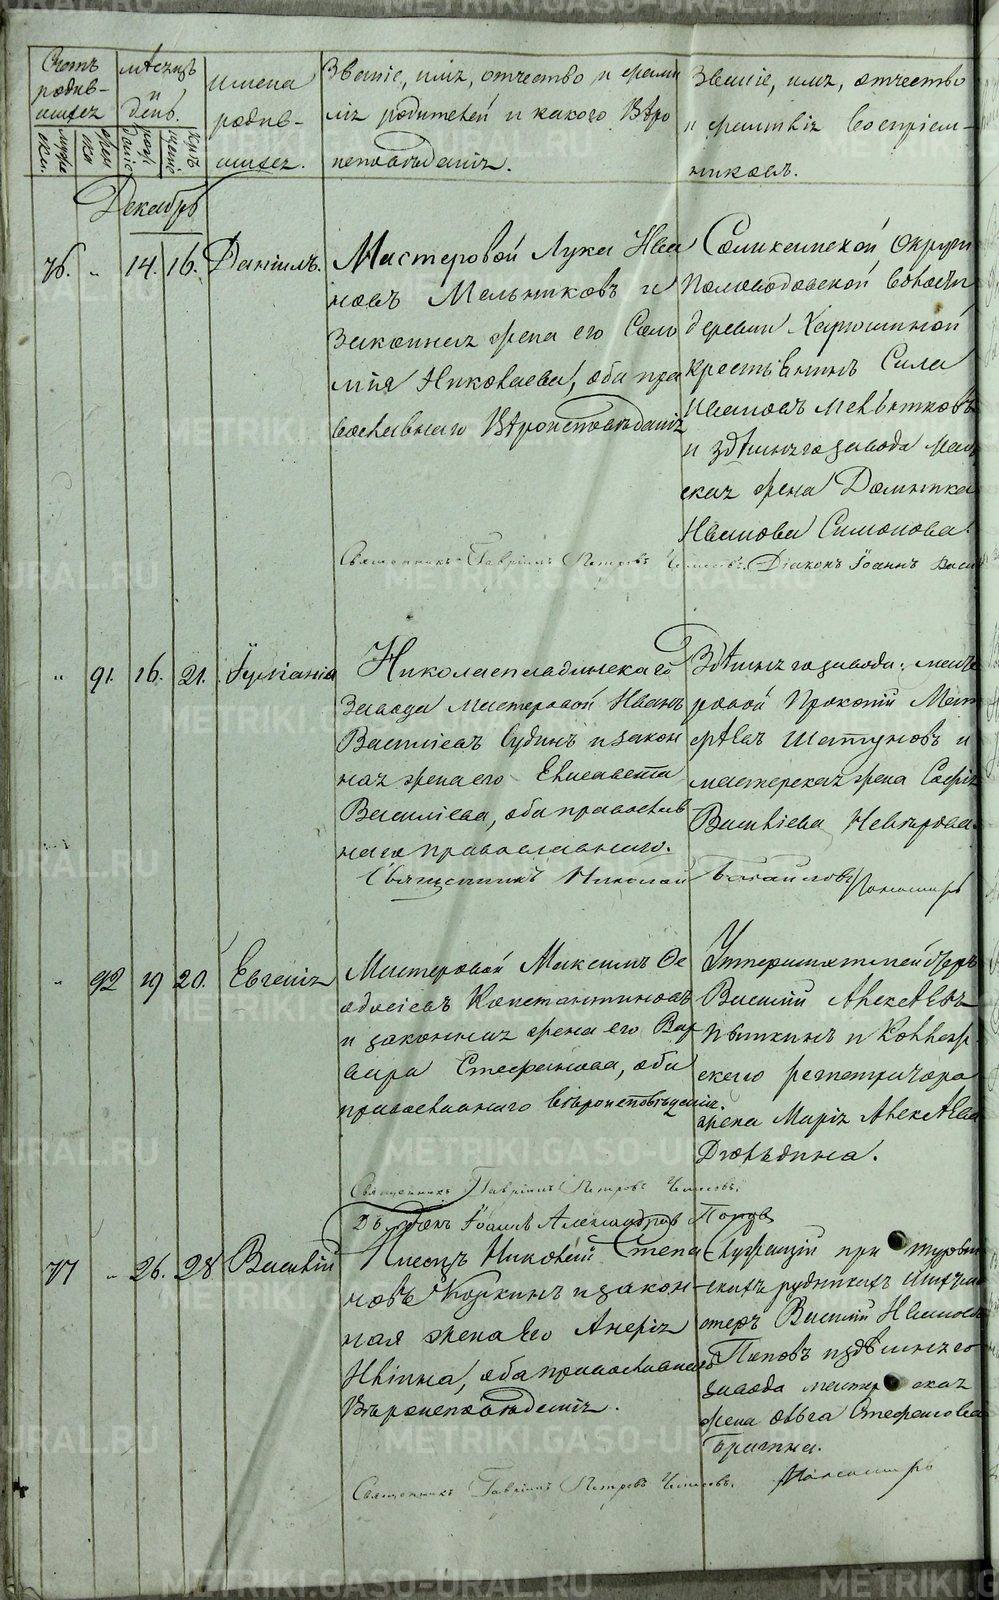 METRIKI.GASO-URAL.RU
Счетъ родив-шихся
мужеска
женска
мѣсяцъ и день.
рожденіе
крещеніе
имена родив-шихся.
Званіе, имя, отчество и фами
лія родителей и какого Вѣро
исповѣданія.
Званіе, имя, отчество
и фамилія Воспріем-
никовъ.
Декабрь
76. " 14. 16. Даніилъ.
Мастеровой Лука Ива
новъ Мельниковъ и
законная жена его Соло
мія Николаева, оба пра
вославнаго Вѣроисповѣданія
Соликамской Округи
Половодовской Волости
деревни Харюшиной
крестьянинъ Сила
Ивановъ Мельниковъ
и здѣшняго завода мас
ская жена Домника
Иванова Симонова.
Священникъ Гавріилъ Петровъ Діаконъ Іоаннъ
" 91. 16. 21. Іуліанія
Николаепавдинскаго
Завода мастеровой Иванъ
Василіевъ Будинъ и закон
ная жена его Елисавета
Василіева, оба православ
наго православнаго.
Здѣшняго завода масте
ровой Прокопій Мат
фѣевъ Шатуновъ и
мастерская жена Софія
Василіева Невѣрова.
Священникъ Николай
" 92 19 20. Евгенія
Мастеровой Максимъ Ѳе
одосіевъ Константиновъ
и законная жена его Вар
вара Стефанова, оба
православнаго вѣроисповѣданія.
Унтершихтмейстеръ
Василій Алексѣевъ
и Коллеж
скаго регистратора
жена Марія Алексѣева
Дягельдина.
Священникъ Гавріилъ Петровъ
Діаконъ Іоаннъ Александровъ Поповъ
77 " 26. 28 Василій
Писецъ Николай Степа
новъ Коркинъ и закон-
ная жена Его Анфія
Ильина, оба православнаго
Вѣроисповѣданія.
при туринскихъ рудникахъ
Василій Ивановъ
Поповъ и здѣшняго
завода мастерская
жена Ольга Стефанова
Священникъ Гавріилъ Петровъ